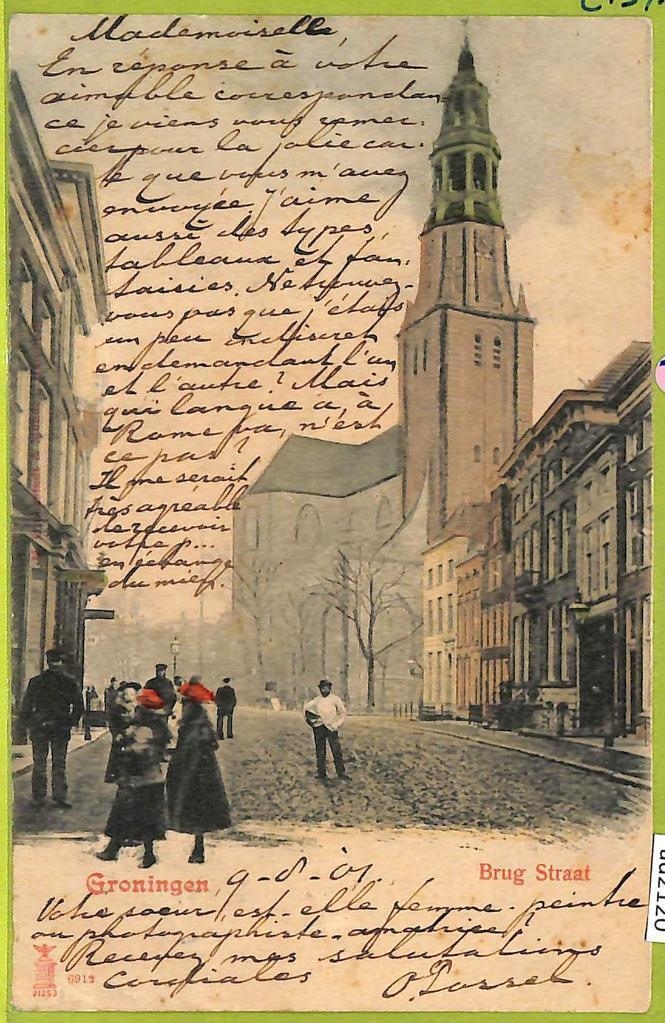 Mademoiselle,
En réponse à votre
aimable correspondan
ce je viens vous remer-
cier pour la jolie car-
te que vous m'avez
envoyée J'aime
aussi des types,
tableaux et fan-
taisies. Ne trouvez-
vous pas que j'étais
un peu indiscret
en demandant l'un
et l'autre? Mais
qui langue a, à
Rome va, n'est
ce pas?
Il me serait
très agréable
de recevoir
votre p...
en échange
du mien.
Groningen 9-8-01.
Brug Straat
Votre soeur, est-elle femme-peintre
ou photographiste-amatrice?
Recevez mes salutations
cordiales
6912
J1253
002120